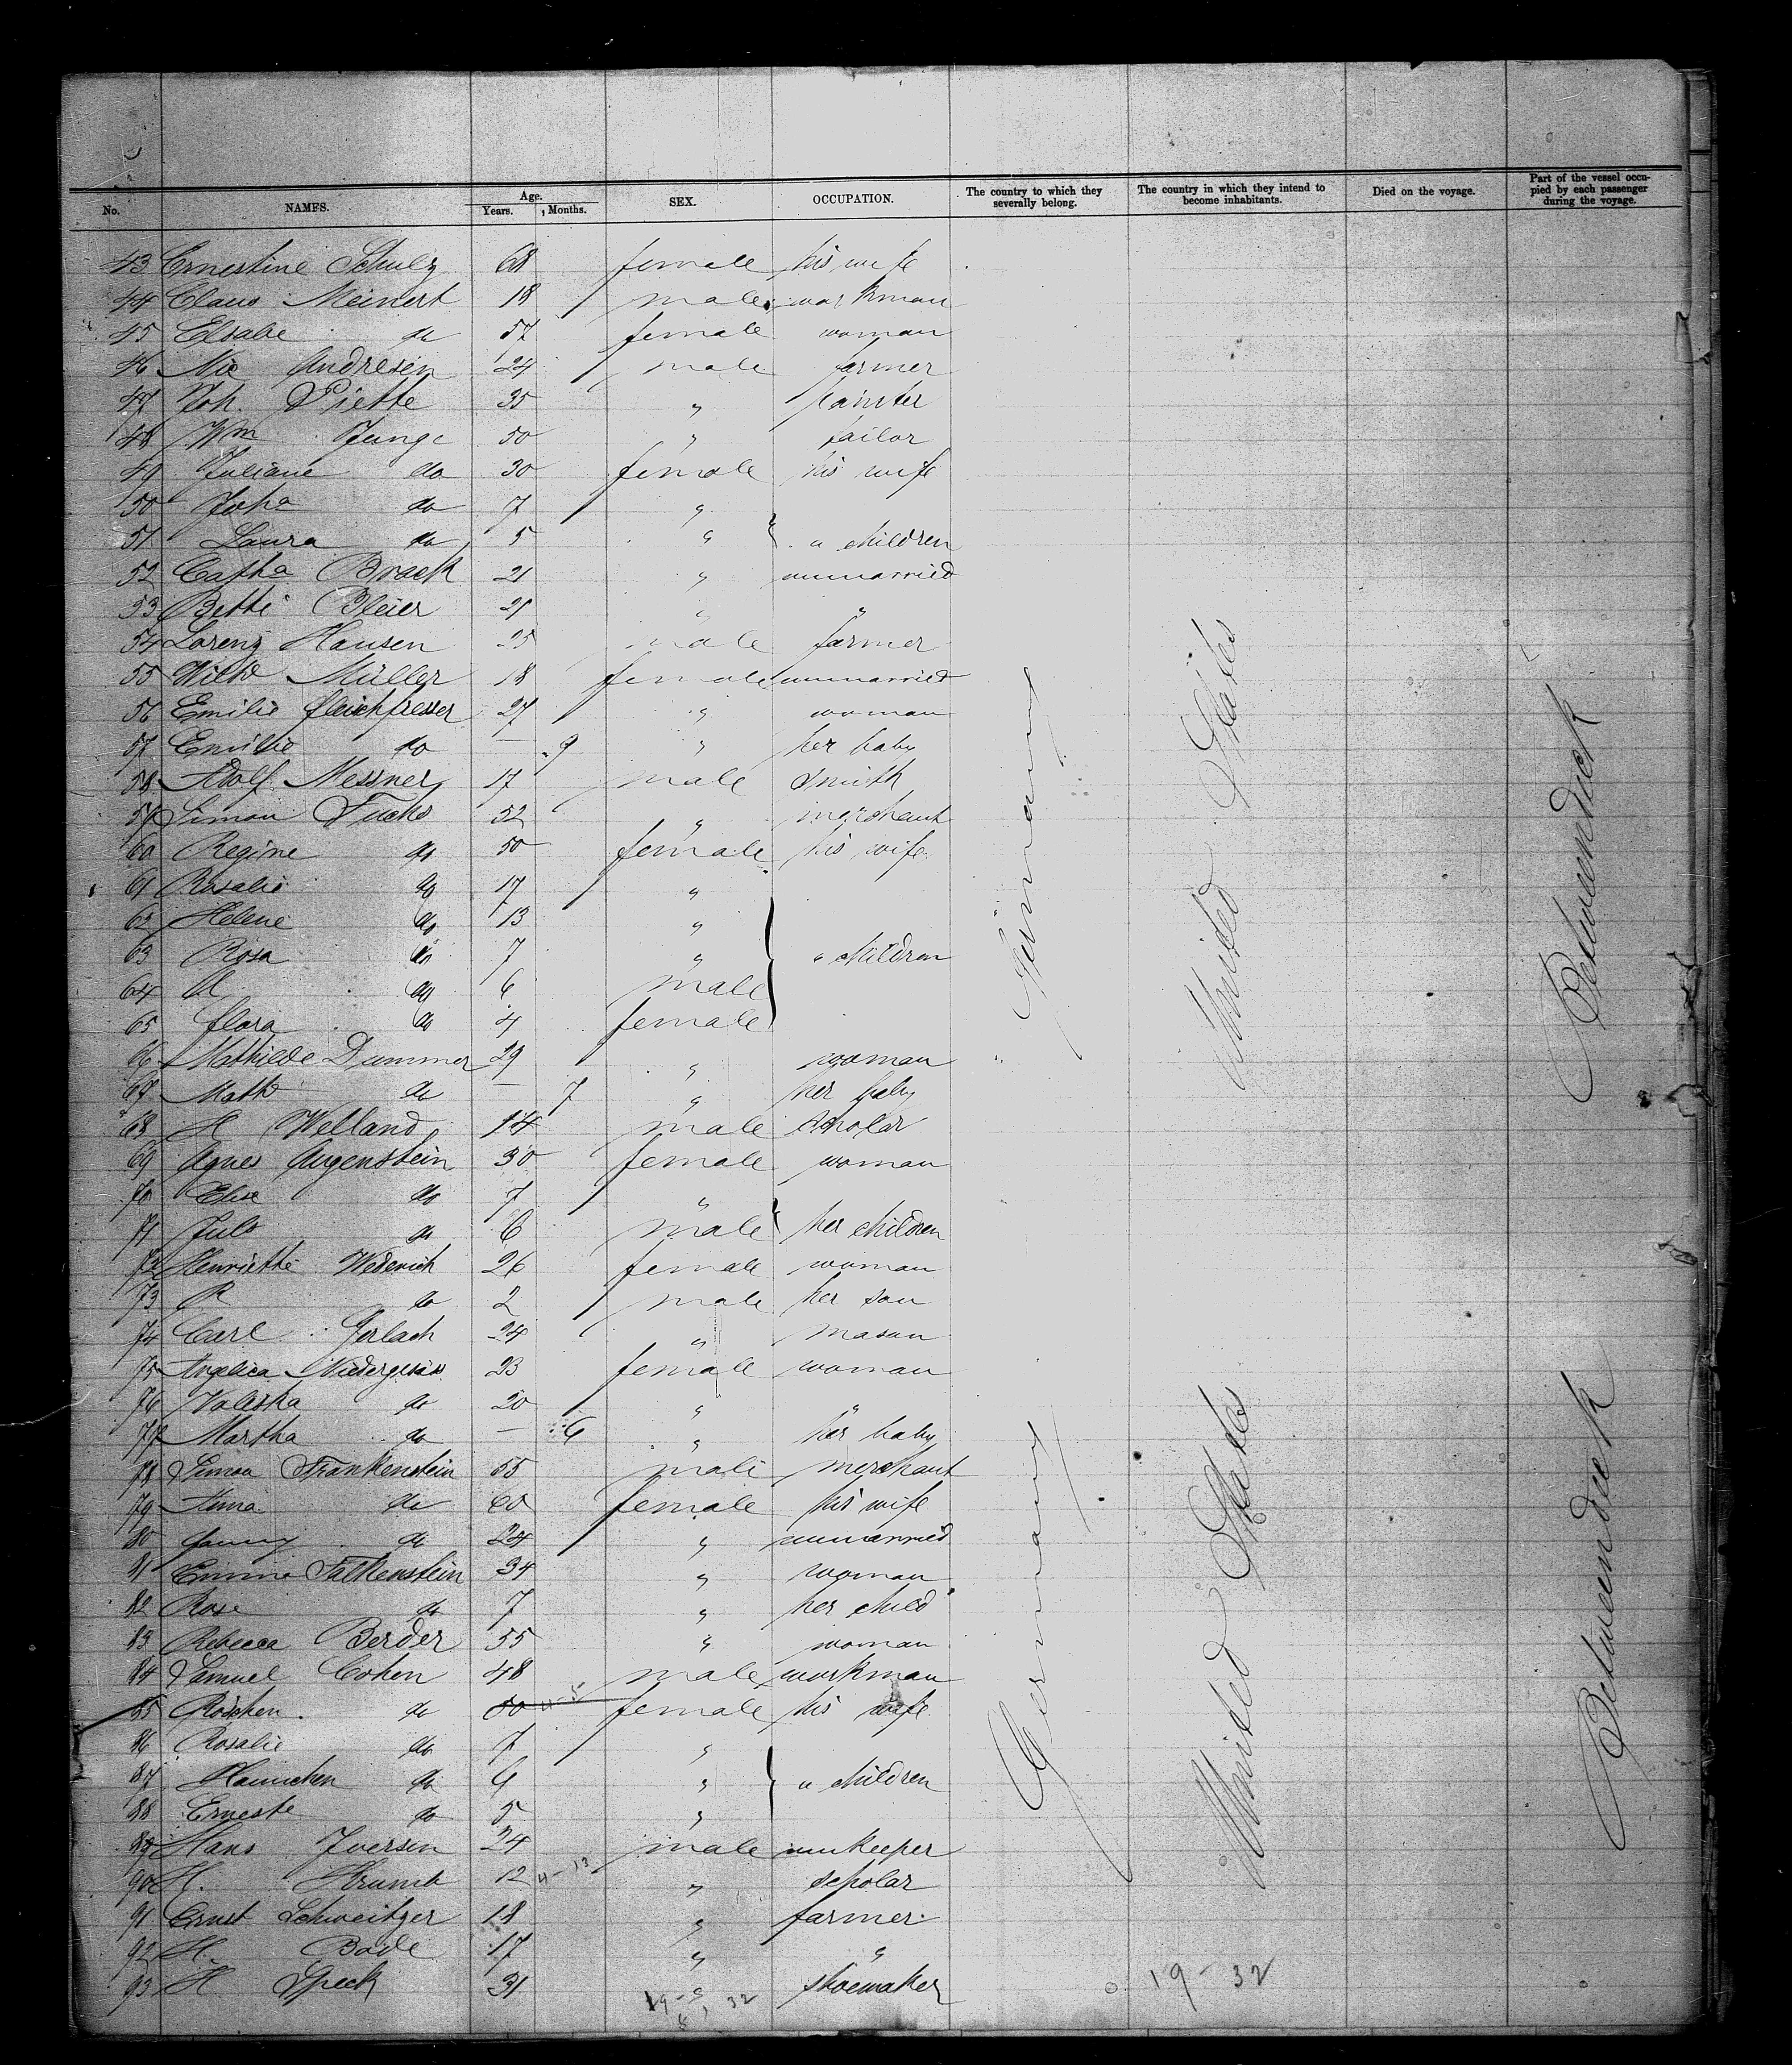 No. NAMES. Age. Years. Months. SEX. OCCUPATION. The country to which they severally belong. The country in which they intend to become inhabitants. Died on the voyage. Part of the vessel occupied by each passenger during the voyage.
43 Ernestine Schulz 68 female his wife
44 Claus Meinert 18 male workman
45 Elsabe do 57 female woman
46 Nic Andresen 24 male farmer
47 Joh. Piette 35 " painter
48 Wm Junge 50 " tailor
49 Juliane do 30 female his wife
50 Joha do 7 "
51 Laura do 5 " " children
52 Catha Brack 21 " unmarried
53 Betti Bleier 21 " "
54 Lorenz Hansen 25 male farmer
55 Wilhe Müller 18 female unmarried
56 Emilie fleischfresser 27 " woman
57 Emilie do — 9 " her baby
58 Adolf Messner 17 male smith
59 Simon Fuchs 52 " merchant
60 Regine do 50 female his wife
61 Rosalie do 17 "
62 Helene do 13 "
63 Rosa do 7 " " children
64 A do 6 male
65 flora do 4 female
66 Mathilde Dummer 29 " woman
67 Mathe do — 7 " her baby
68 H Welland 14 male scholar
69 Agnes Augenstein 30 female woman
70 Elise do 7 "
71 Juls do 6 male her children
72 Henriette Wederich 26 female woman
73 R do 2 male her son
74 Carl Gerlach 24 " mason
75 Angelica Niedergesäss 23 female woman
76 Valeska do 20 " "
77 Martha do — 6 " her baby
78 Simon Frankenstein 55 male merchant
79 Anna do 60 female his wife
80 fanny do 24 " unmarried
81 Emma Falkenstein 34 " woman
82 Rose do 7 " her child
83 Rebecca Berder 55 " woman
84 Samuel Cohen 48 male workman
85 Röschen do 50 female his wife
86 Rosalie do 7 "
87 Hannchen do 6 " " children
88 Erneste do 5 "
89 Hans Iversen 24 male innkeeper
90 H. Krumb 12 " scholar
91 Ernst Schweitzer 18 " farmer
92 H. Bode 17 " "
93 H Speck 31 " shoemaker
19-32
Germany
United States
Betweendeck
Germany
United States
Betweendeck